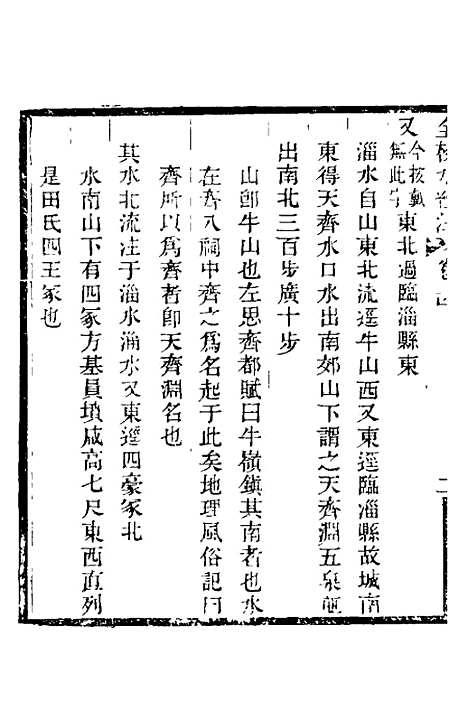 又今按戴無此字東北過臨淄縣東
淄水自山東北流逕牛山西又東逕臨淄縣故城南
東得天齊水口水出南郊山下謂之天齊淵五泉並
出南北三百步廣十步
山卽牛山也左思齊都賦曰牛嶺鎮其南者也水
在齊八祠中齊之爲名起于此矣地理風俗記曰
齊所以爲齊者卽天齊淵名也
其水北流注于淄水淄水又東逕四豪冢北
水南山下有四冢方基員墳咸高七尺東西直列
是田氏四王冢也
二